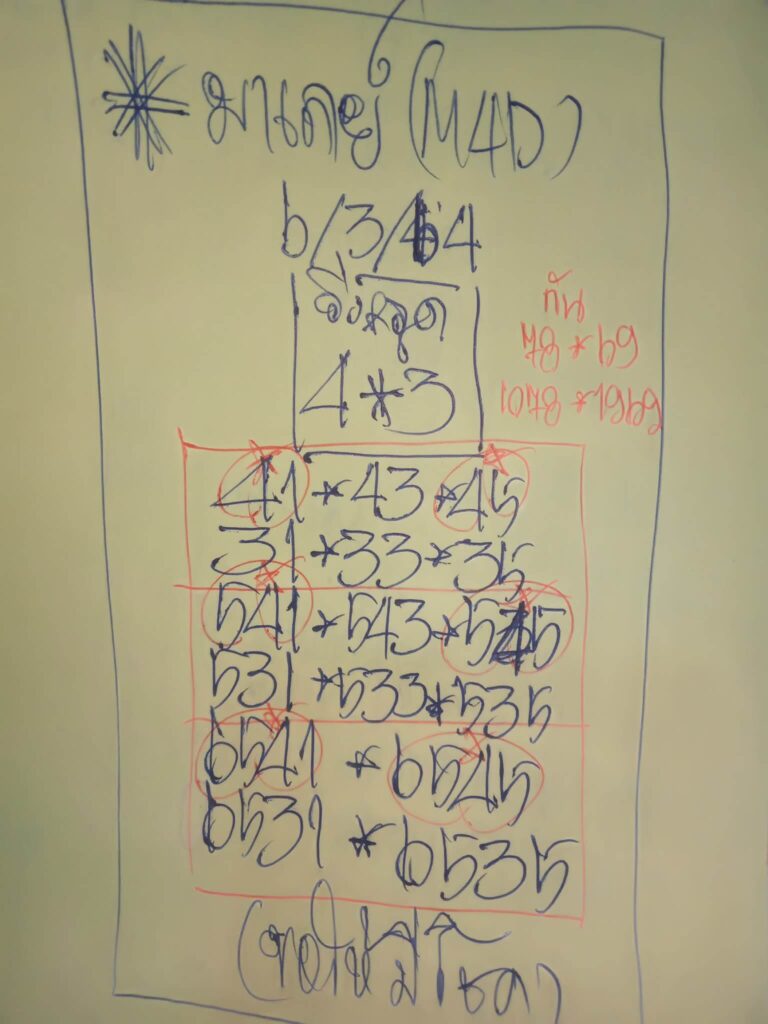 มาเลย์ (M4D)
6/3/64
วิ่งหลุด
4*3
กัน
78*69
1078*1969
41*43*45
31*33*35
541*543*545
531*533*535
6541 * 6545
6531 * 6535
(ขอให้มีโชค)